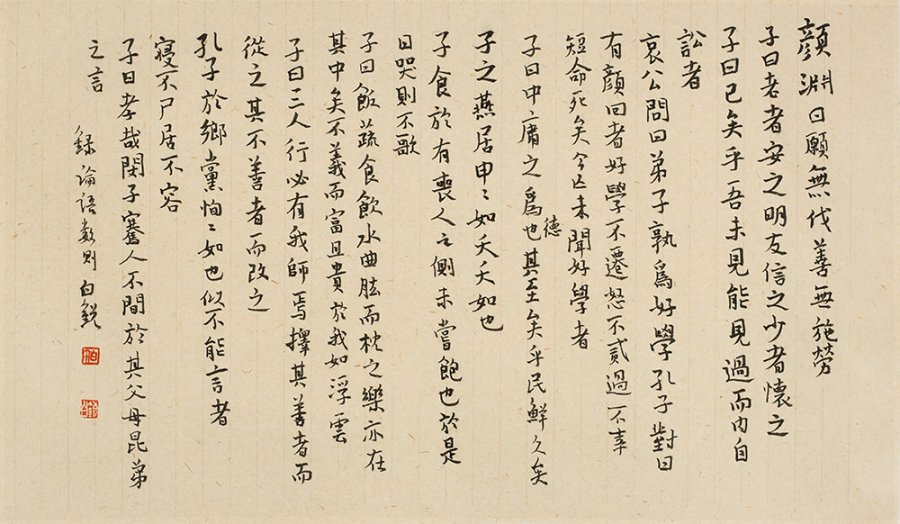 顏淵曰願無伐善無施勞
子曰老者安之朋友信之少者懷之
子曰已矣乎吾未見能見過而內自
訟者
哀公問曰弟子孰爲好學孔子對曰
有顏回者好學不遷怒不貳過不幸
短命死矣今亡未聞好學者
子曰中庸之爲德也其至矣乎民鮮久矣
子之燕居申〻如夭夭如也
子食於有喪人之側未嘗飽也於是
日哭則不歌
子曰飯蔬食飲水曲肱而枕之樂亦在
其中矣不義而富且貴於我如浮雲
子曰三人行必有我師焉擇其善者而
從之其不善者而改之
孔子於鄉黨恂〻如也似不能言者
寢不尸居不容
子曰孝哉閔子騫人不間於其父母昆弟
之言
錄論語數則 白銳